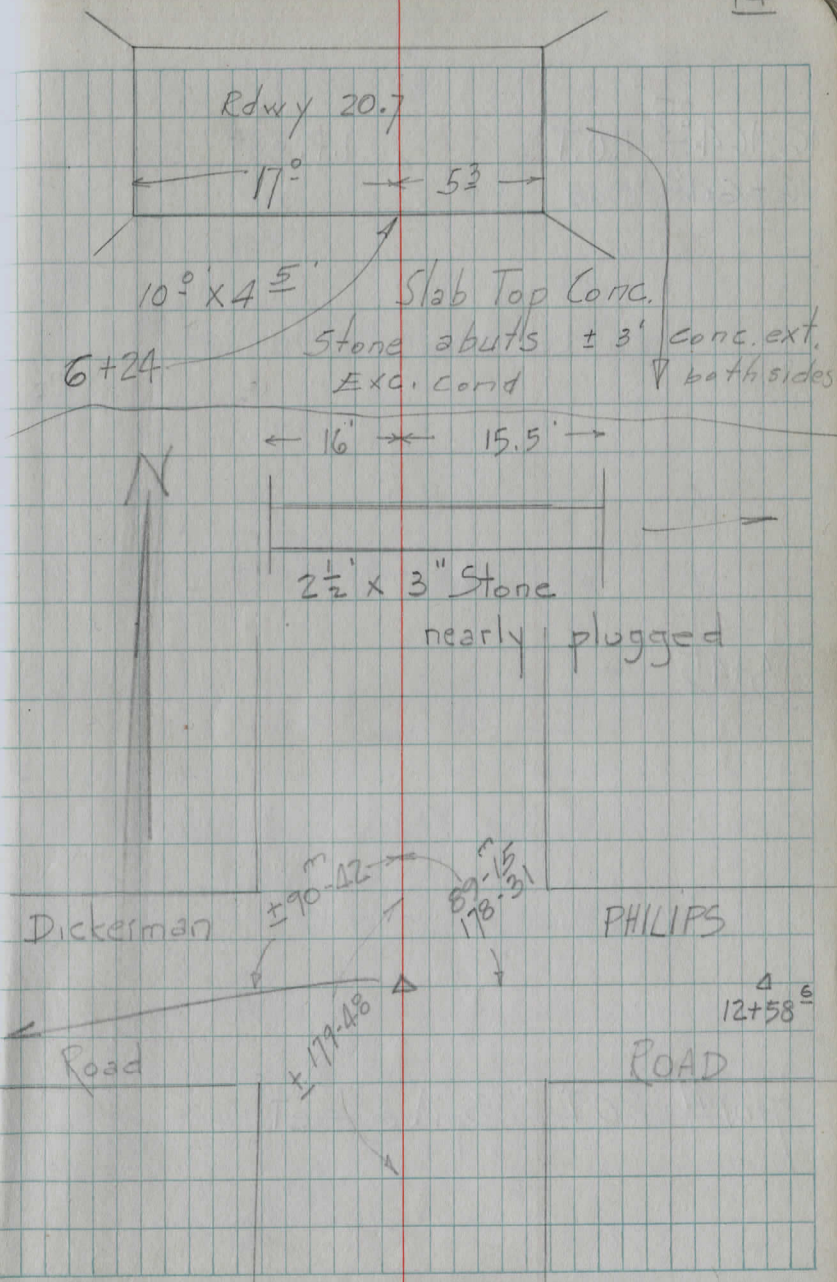 Rdwy 20.7
17º 5³
10º' x 4⁵'
Slab Top Conc.
Stone abuts ± 3' conc. ext.
6+24
Exc. Cond
both sides
16' 15.5'
N
2½' x 3" Stone
nearly plugged
±90-42
89-15
178-31
Dickerman
PHILIPS
12+58⁶
± 179-48
Road
ROAD